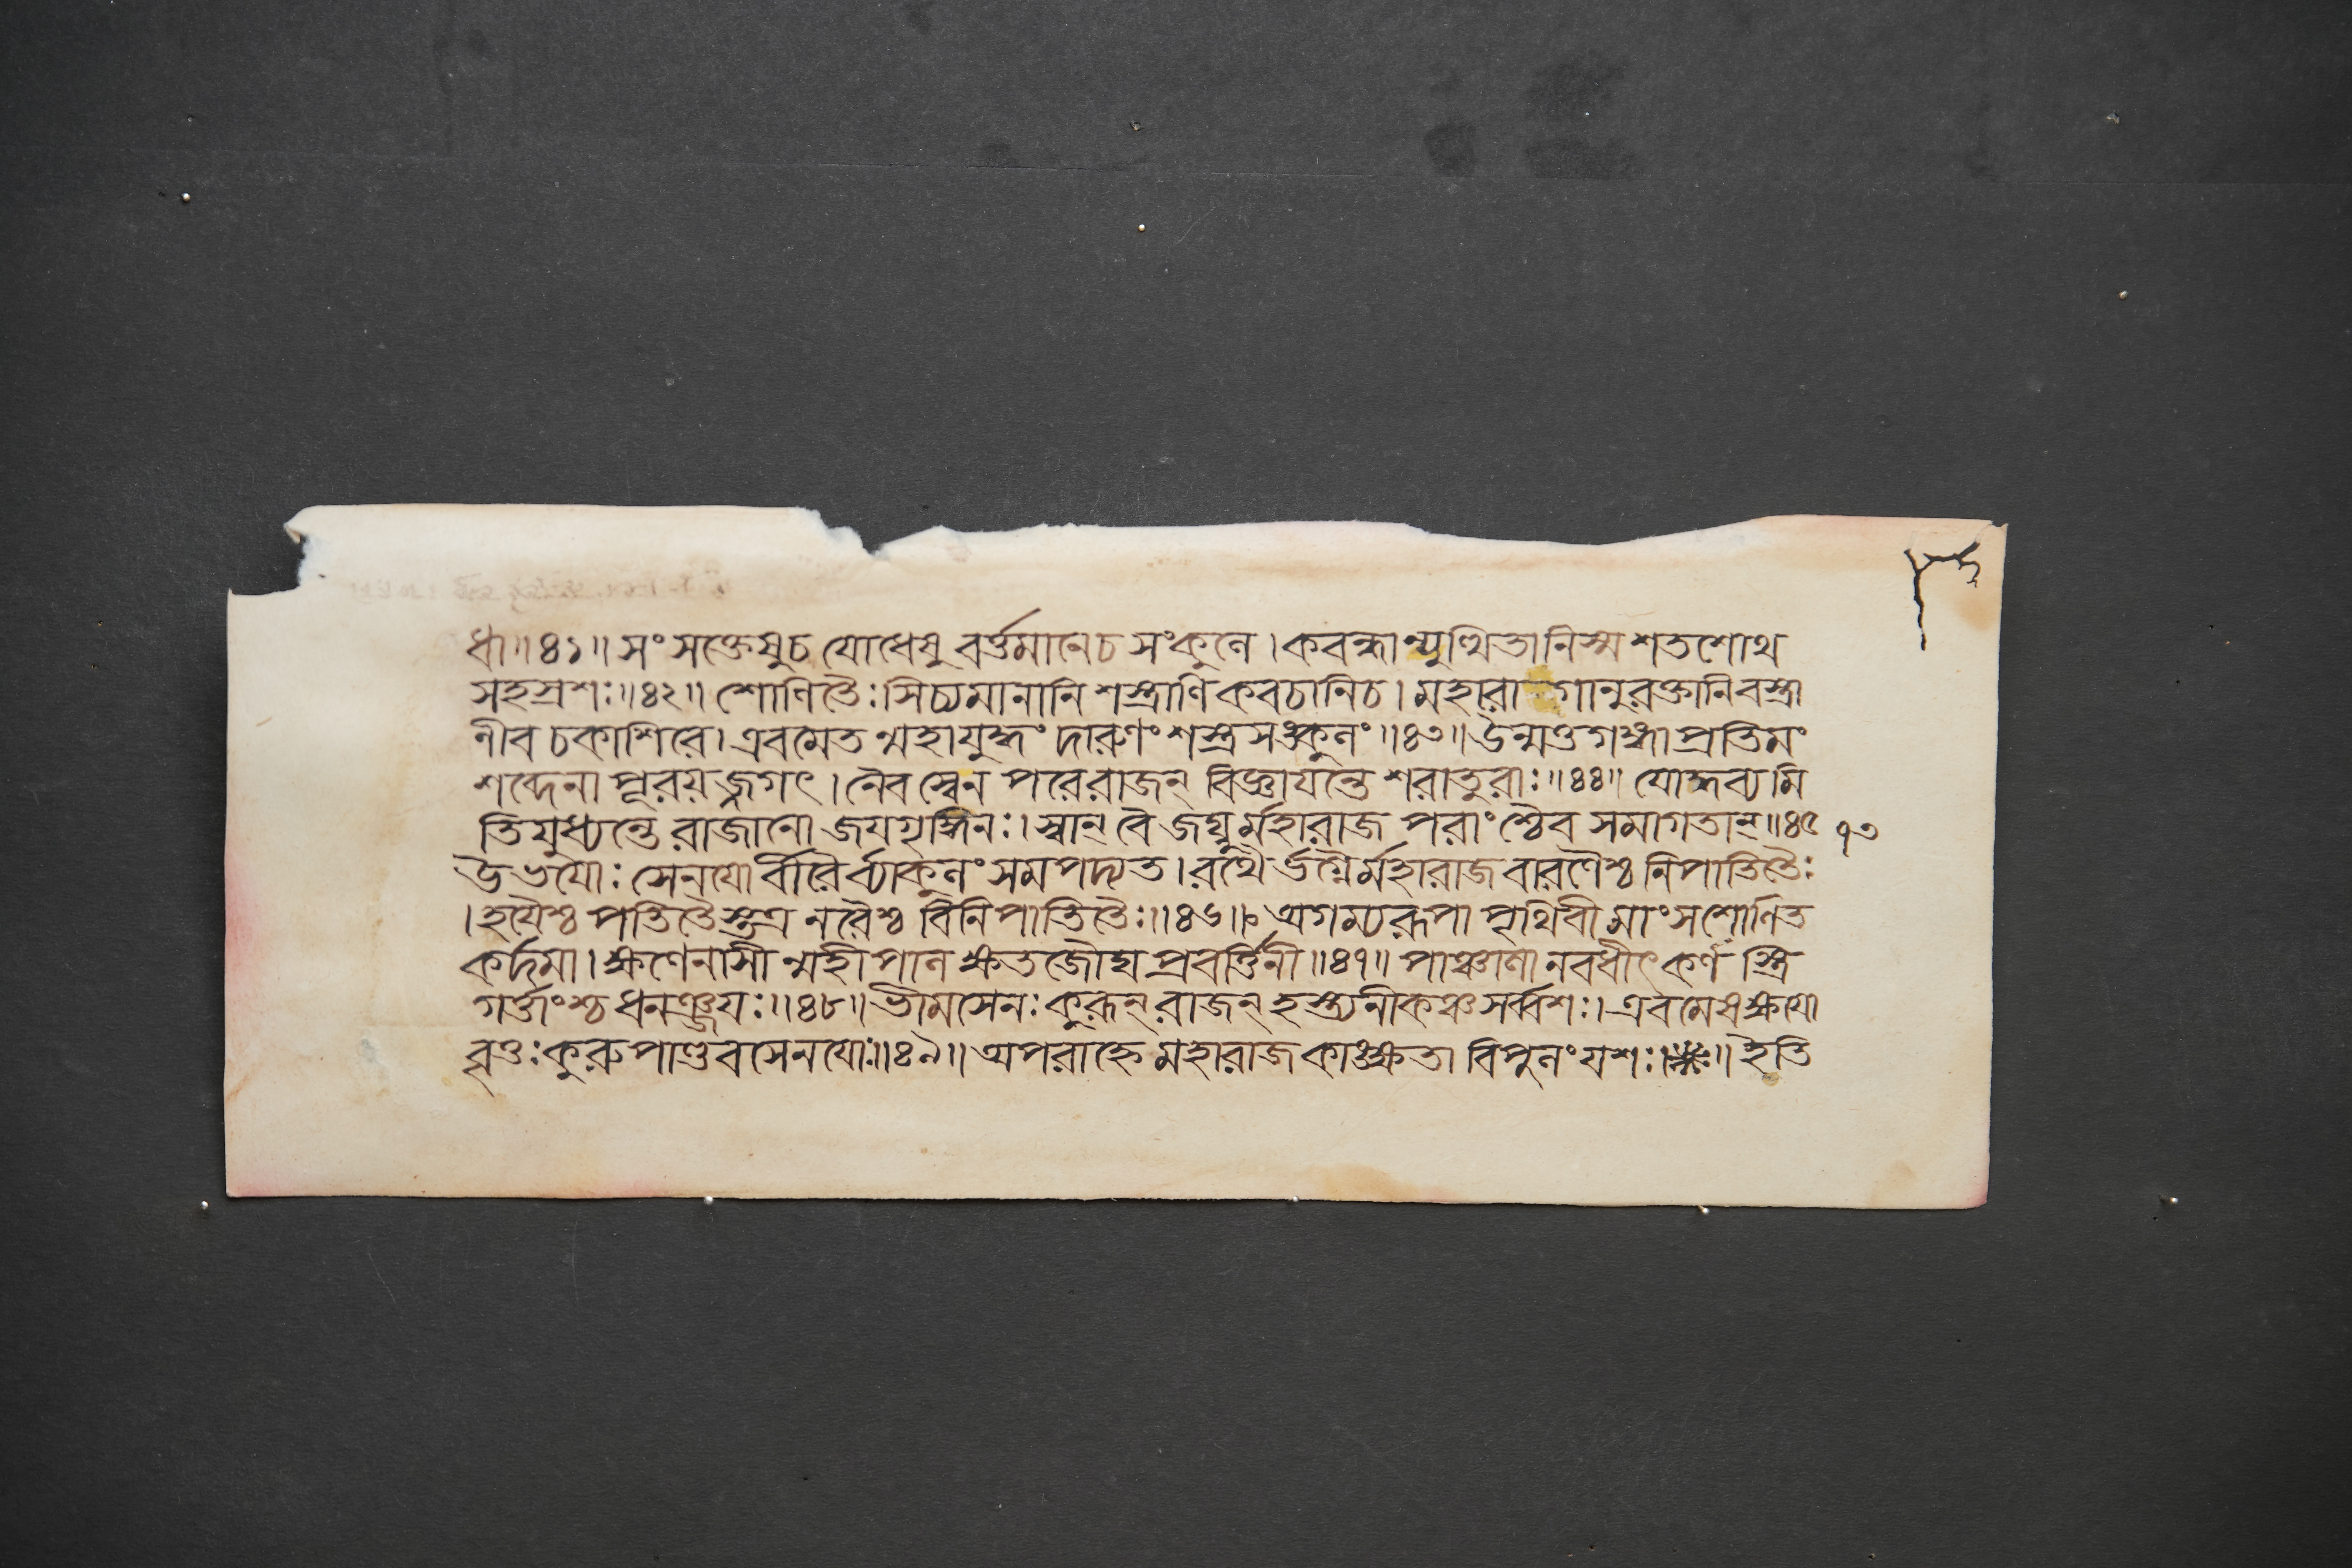 ধা॥৪১॥ সংসক্তেষুচ যোধেষু বর্ত্তমানেচ সংকুলে। কবন্ধান্যুত্থিতানিস্ম শতশোথ
সহস্রশঃ॥৪২॥ শোণিতৈঃ সিচ্যমানানি শস্ত্রাণি কবচানিচ। মহারা গানুরক্তানি বস্ত্রা
ণীব চকাশিরে। এবমেত ন্মহাযুদ্ধং দারুণং শস্ত্রসঙ্কুলং॥৪৩॥ উন্মত্তগঙ্গাপ্রতিমং
শব্দেনা পূরয়জ্জগৎ। নৈবস্বেন পরেরাজন্ বিজ্ঞাযন্তে শরাতুরাঃ॥৪৪॥ যোদ্ধব্যমি
তিযুধ্যন্তে রাজানো জযগৃদ্ধিনঃ। স্বান্ বৈ জঘ্নুর্মহারাজ পরাংশ্চৈব সমাগতান্॥৪৫ ৭৩
উভযোঃ সেনযো র্বীরৈর্ব্যাকুলং সমপদ্যত। রথৈ র্ভগ্নৈর্মহারাজ বারণৈশ্চ নিপাতিতৈঃ
। হযৈশ্চ পতিতৈস্তত্র নরৈশ্চ বিনিপাতিতৈঃ॥৪৬॥ অগম্যরূপা পৃথিবী মাংসশোণিত
কর্দমা। ক্ষণেনাসী ন্মহীপাল ক্ষতজৌঘ প্রবর্ত্তিনী॥৪৭॥ পাঞ্চালা নবধীৎ কর্ণ স্ত্রি
গর্ত্তাংশ্চ ধনঞ্জযঃ॥৪৮॥ ভীমসেনঃ কুরূন্ রাজন্ হস্ত্যনীকঞ্চ সর্ব্বশঃ। এবমেষ ক্ষযো
বৃত্তঃ কুরুপাণ্ডবসেনযোঃ॥৪৯॥ অপরাহ্নে মহারাজ কাঙ্ক্ষতা বিপুলং যশঃ॥ ॥ ইতি